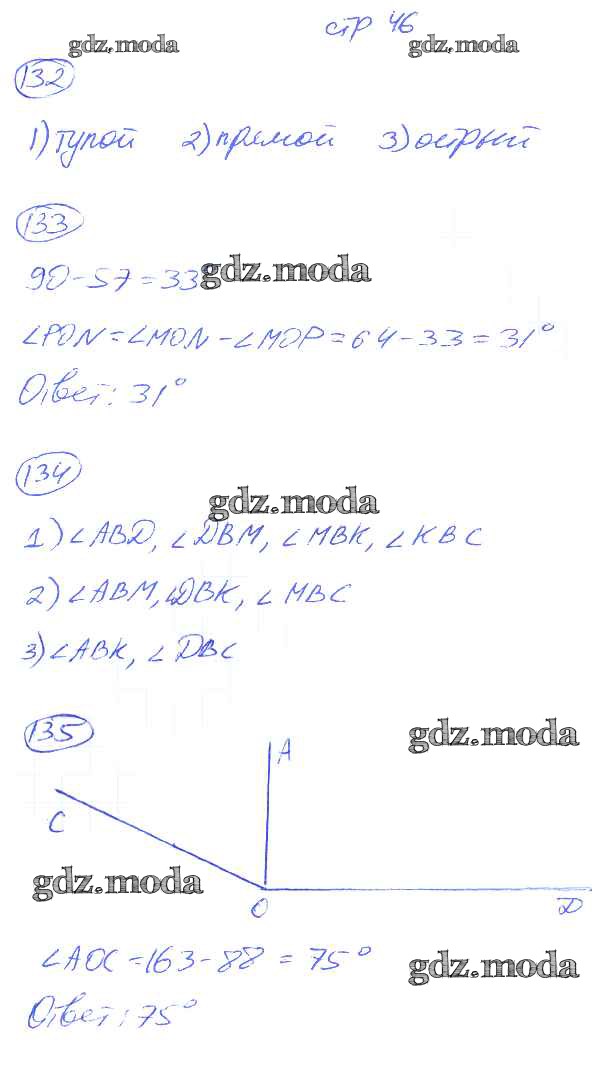 стр 46
gdz.moda gdz.moda
132
1) тупой 2) прямой 3) острый
133
90-57=33
gdz.moda
∠PON=∠MON-∠MOP=64-33=31°
Ответ: 31°
134
gdz.moda
1) ∠ABD, ∠DBM, ∠MBK, ∠KBC
2) ∠ABM, ∠DBK, ∠MBC
3) ∠ABK, ∠DBC
135
gdz.moda
A
C
gdz.moda
O D
∠AOC=163-88=75°
gdz.moda
Ответ: 75°